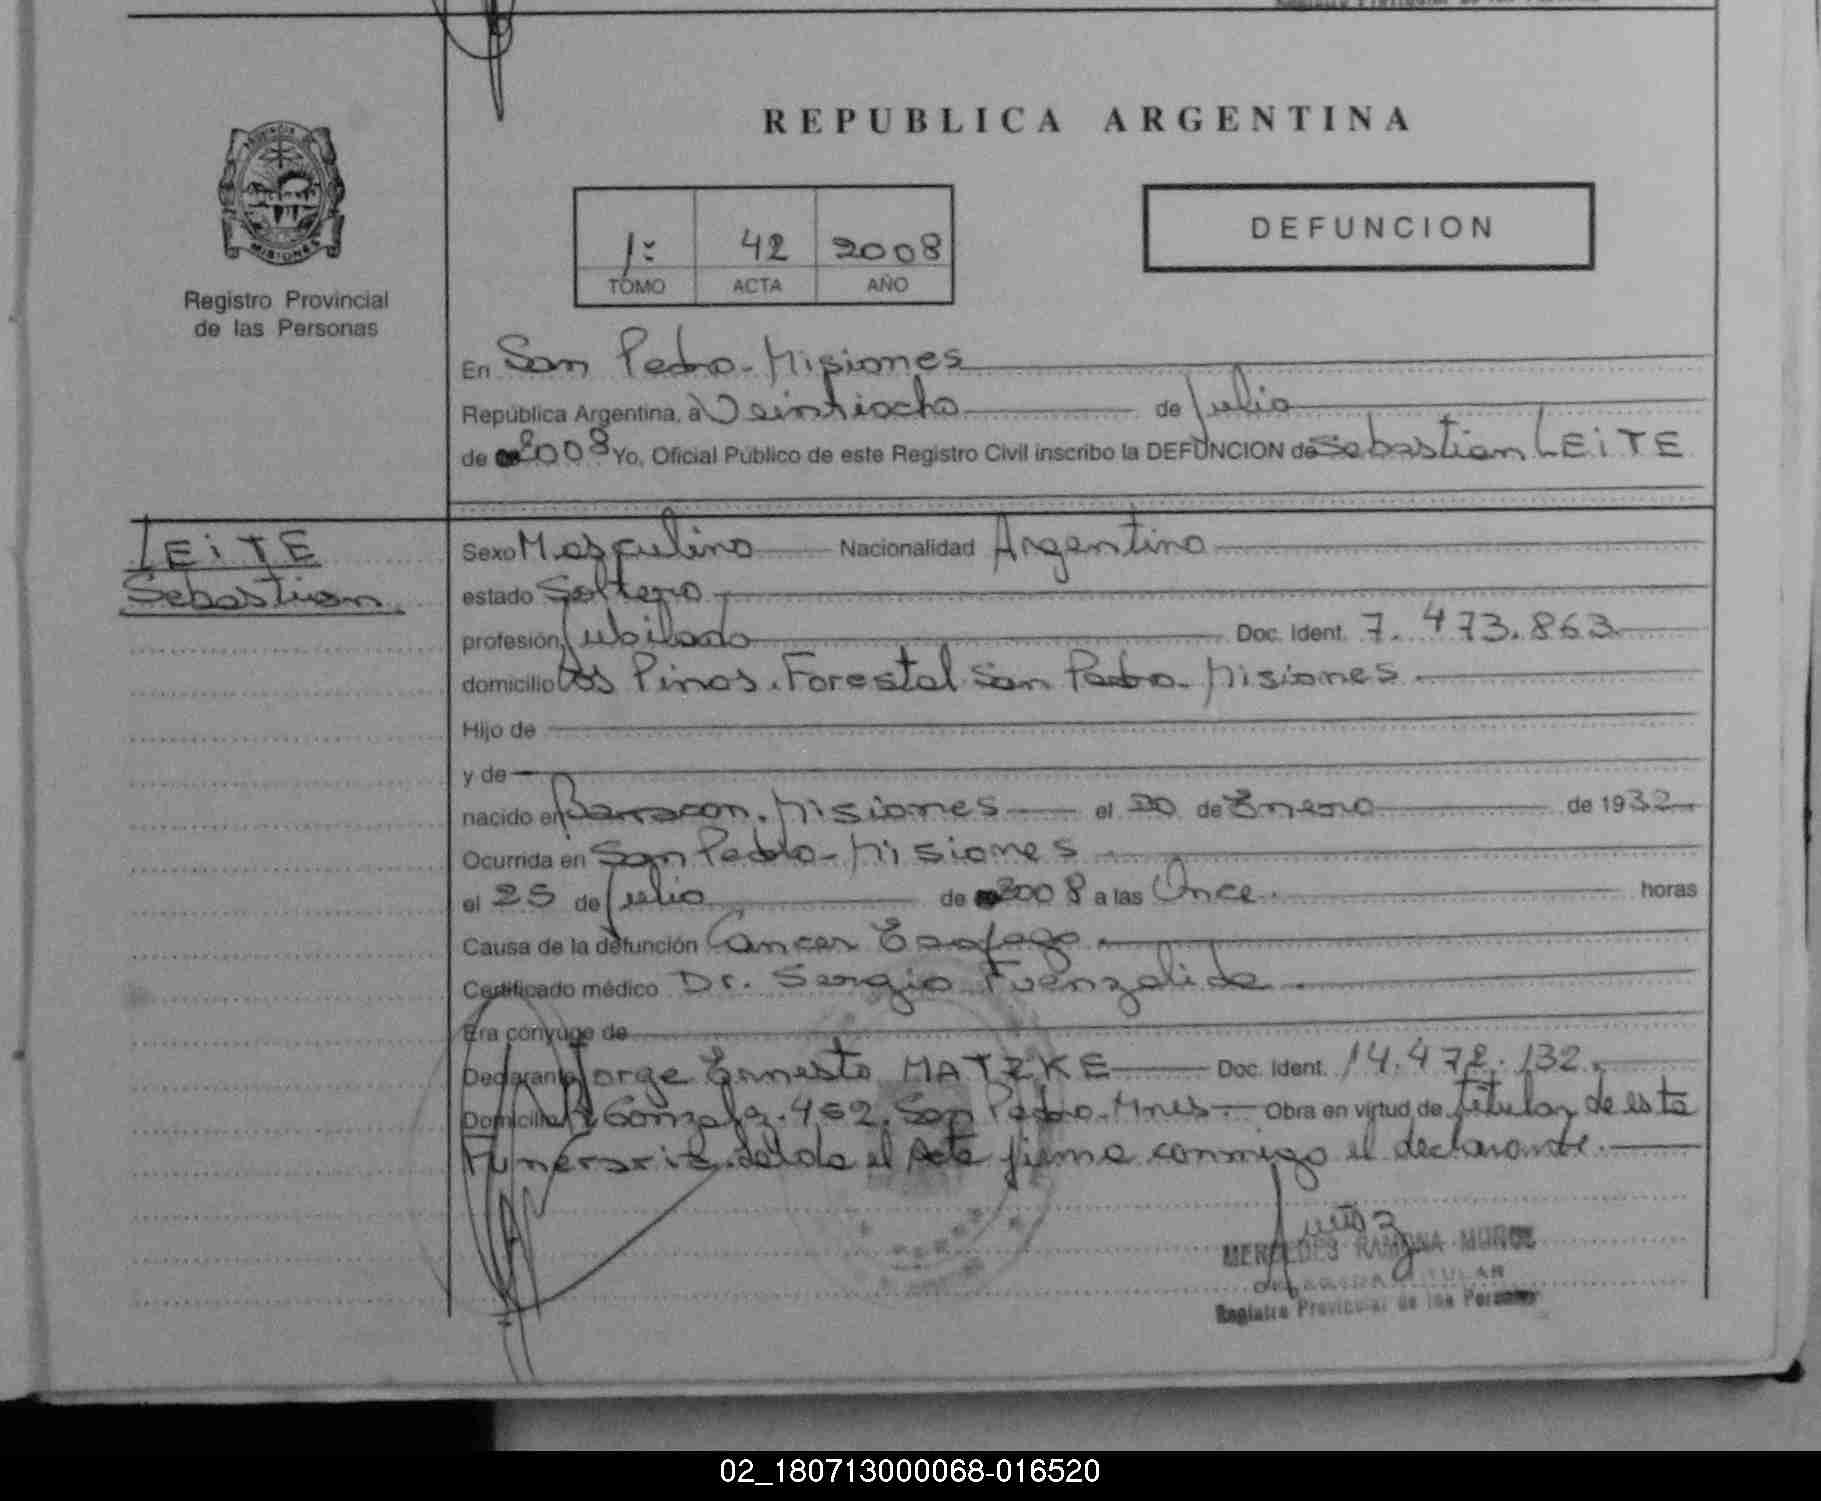 REPUBLICA ARGENTINA
PROVINCIA DE
MISIONES
Registro Provincial
de las Personas
1º 42 2008
TOMO ACTA AÑO
DEFUNCION
En San Pedro - Misiones
República Argentina, a Veintiocho de Julio
de 2008 Yo, Oficial Público de este Registro Civil inscribo la DEFUNCION de Sebastian LEiTE
LEiTE
Sebastian
Sexo Masculino Nacionalidad Argentino
estado Soltero
profesión Jubilado Doc. Ident. 7.473.863
domicilio Los Pinos. Forestal San Pedro - Misiones
Hijo de
y de
nacido en Barracon. Misiones el 20 de Enero de 1932
Ocurrida en San Pedro - Misiones
el 25 de Julio de 2008 a las Once. horas
Causa de la defunción Cancer Esofago.
Certificado médico Dr. Sergio Fuenzalida.
Era cónyuge de
Declarante Jorge Ernesto MATZKE Doc. Ident. 14.472.132.
Domicilio Gonzalez. 452. San Pedro - Mnes - Obra en virtud de titular de esta
Funeraria. Leida el Acta firma conmigo el declarante.
MERCEDES RAMONA MUÑOZ
TITULAR
Registro Provincial de las Personas
02_180713000068-016520